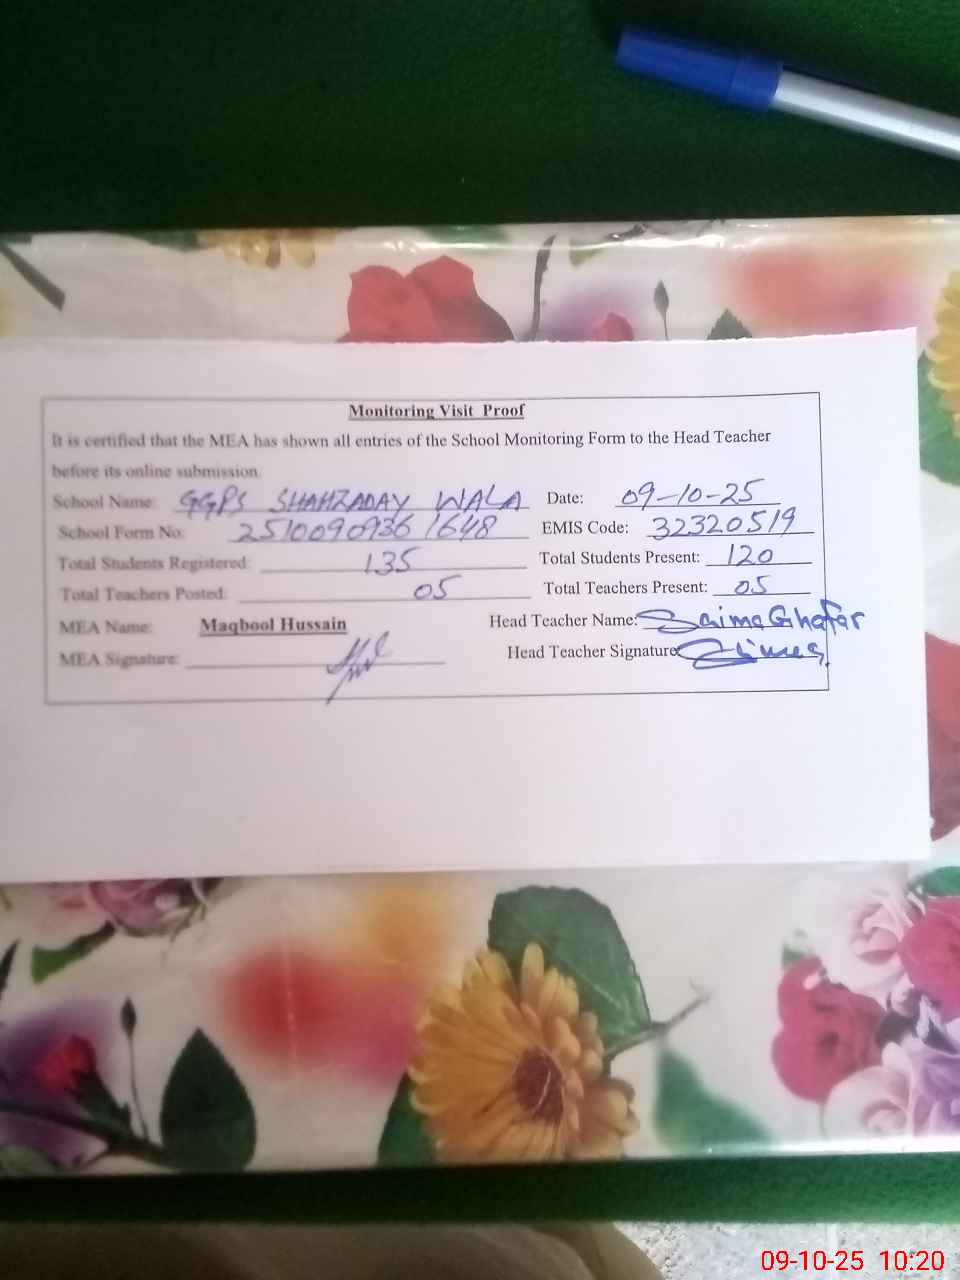 Monitoring Visit Proof
It is certified that the MEA has shown all entries of the School Monitoring Form to the Head Teacher
before its online submission.
School Name: GGPS SHAHZADAY WALA Date: 09-10-25
School Form No: 25100909361648 EMIS Code: 32320519
Total Students Registered: 135 Total Students Present: 120
Total Teachers Posted: 05 Total Teachers Present: 05
MEA Name: Maqbool Hussain Head Teacher Name: Saima Ghafar
MEA Signature: Head Teacher Signature
09-10-25 10:20